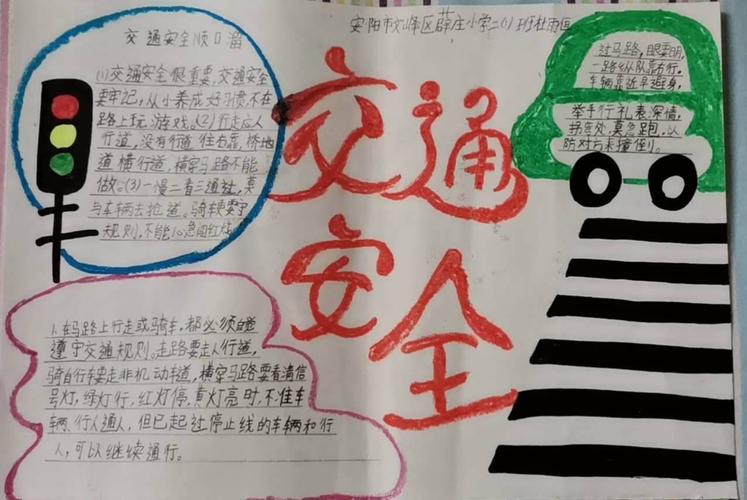 安阳市文峰区薛庄小学二(1)班杜雨
交通安全顺口溜
(1)交通安全很重要,交通安全
要牢记,从小养成好习惯,不在
路上玩游戏。(2)行走应人
行道,没有行道往右靠,桥地
道横行道,横穿马路不能
做。(3)一慢二看三通过,莫
与车辆去抢道。骑车要守
规则,不能心急闯红灯
交通
安全
过马路,眼要明,
一路纵队靠右行。
车辆靠近早避身,
举手行礼表深情,
拐弯处,莫急跑,以
防对方来撞倒。
1.在马路上行走或骑车,都必须自觉
遵守交通规则。走路要走人行道,
骑自行车要走非机动车道,横穿马路要看清信
号灯,绿灯行,红灯停,黄灯亮时,不准车
辆、行人通人,但已起过停止线的车辆和行
人,可以继续通行。